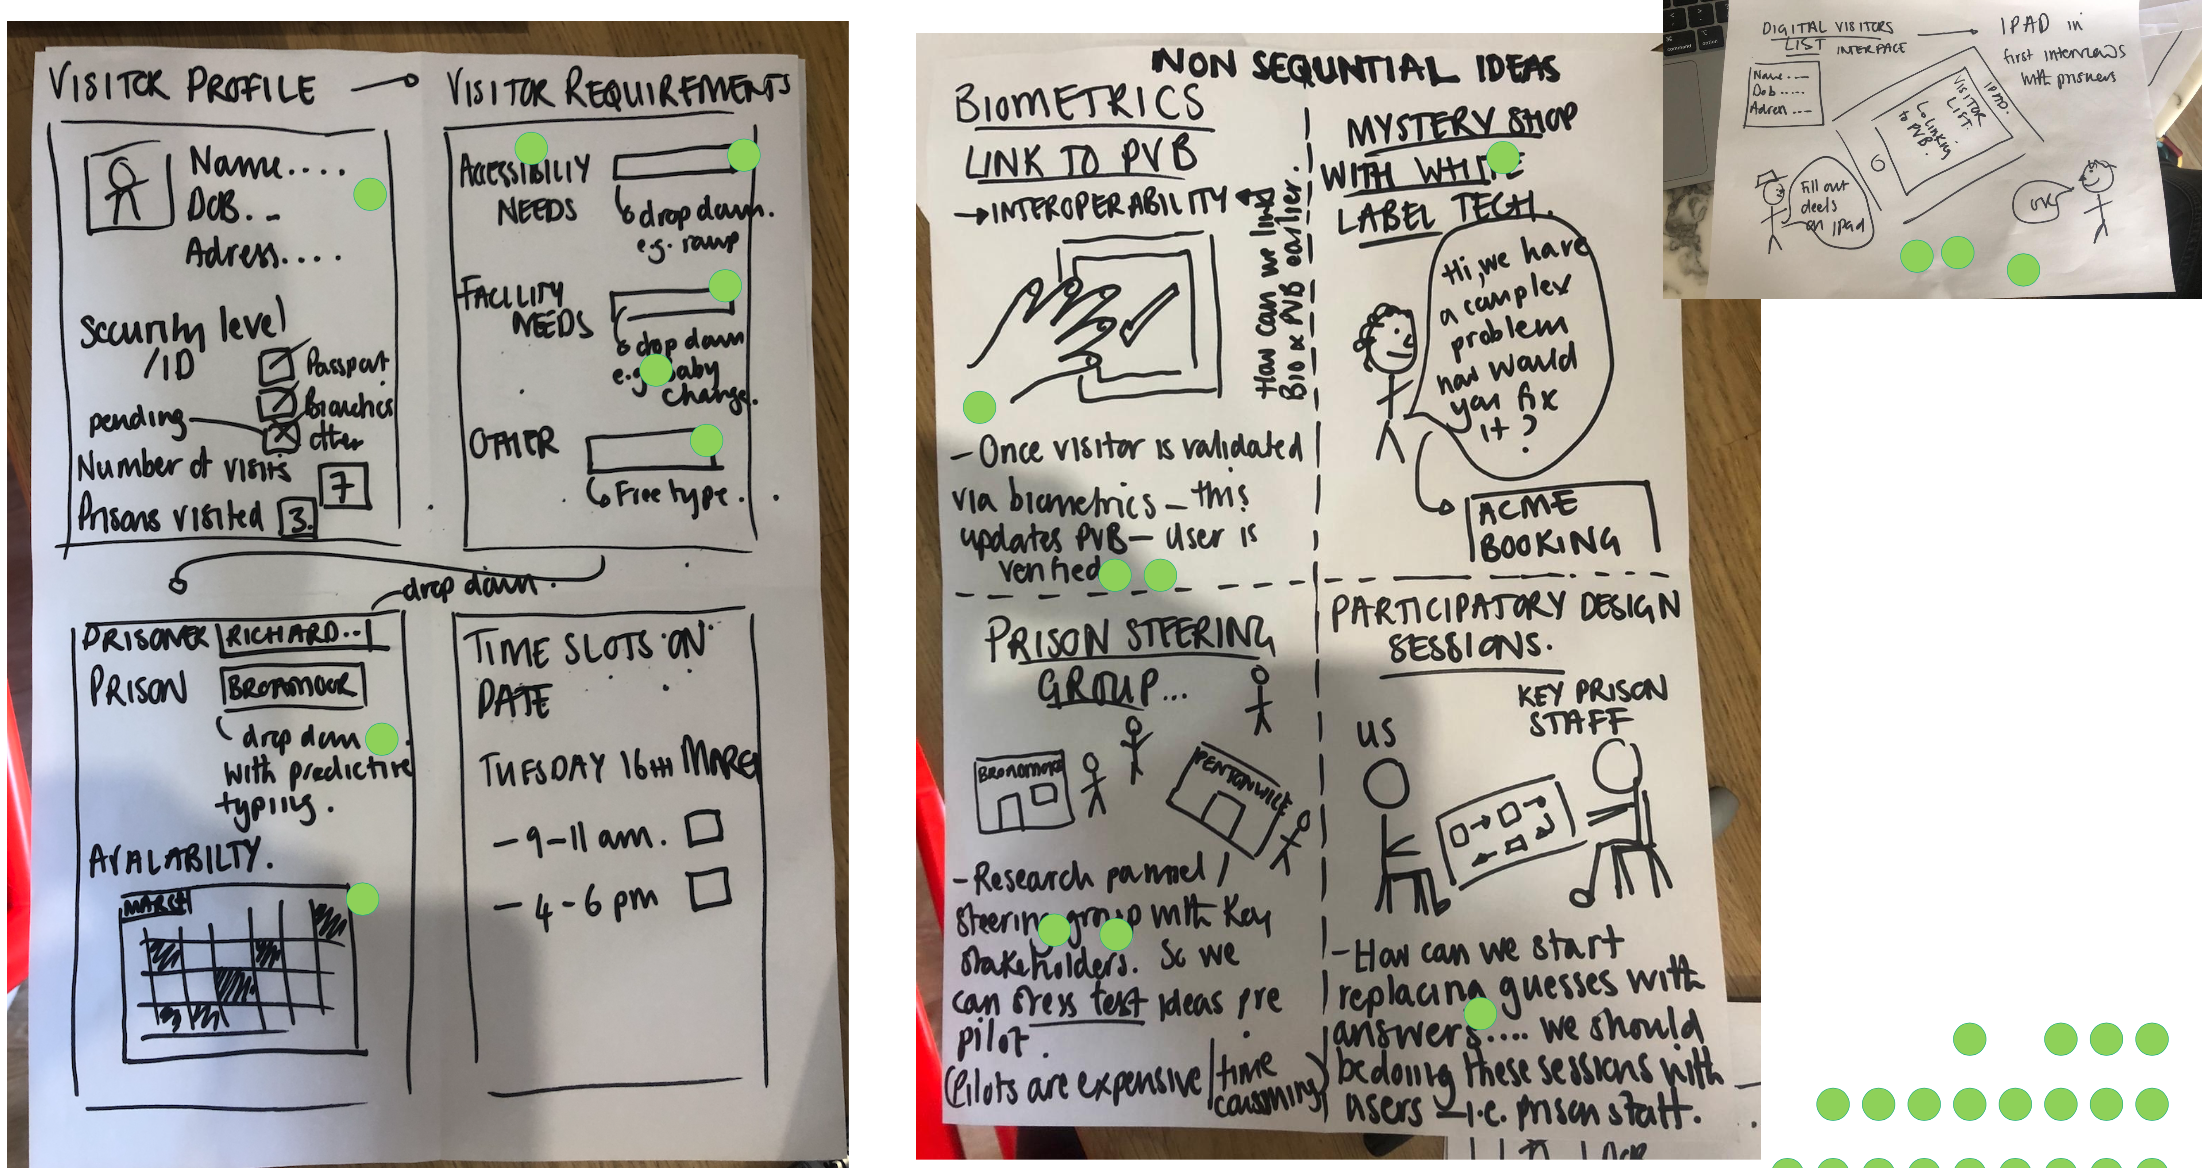 VISITOR PROFILE
Name....
DOB. ..
Adress....
Security level
/ID
Passport
pending
other
Number of visits
7
Prisons visited 3.
VISITOR REQUIREMENTS
NEEDS
drop down.
e.g. ramp
FACILITY
NEEDS
drop down
change.
OTHER
Free type.
drop down.
PRISONER RICHARD..
PRISON BROADMOOR
drop down
with predictive
typing.
AVALABILTY.
MARCH
TIME SLOTS ON
DATE
TUESDAY 16TH MARCH
- 9-11 am.
- 4-6 pm
NON SEQUNTIAL IDEAS
BIOMETRICS
LINK TO PVB
→ INTEROPERABILITY
How can we link
Bio & PVB earlier.
- Once visitor is validated
via biometrics - this
updates PVB - User is
verified
MYSTERY SHOP
WITH WHITE
LABEL TECH.
Hi, we have
a complex
problem
how would
you fix
it?
ACME
BOOKING
PRISON STEERING
GROUP...
BROADMOOR
PENTONVILLE
- Research pannel /
steering group with key
stakeholders. So we
can stress test ideas pre
pilot.
(Pilots are expensive / time
consuming)
PARTICIPATORY DESIGN
SESSIONS.
KEY PRISON
STAFF
US
- How can we start
replacing guesses with
answers.... we should
be doing these sessions with
users - i.e. prison staff.
DIGITAL VISITORS
LIST INTERFACE
IPAD in
first interviews
with prisoners
Name ...
Dob .....
IPAD.
VISITOR
LIST.
linking
to PVB.
Fill out
on ipad
command
option